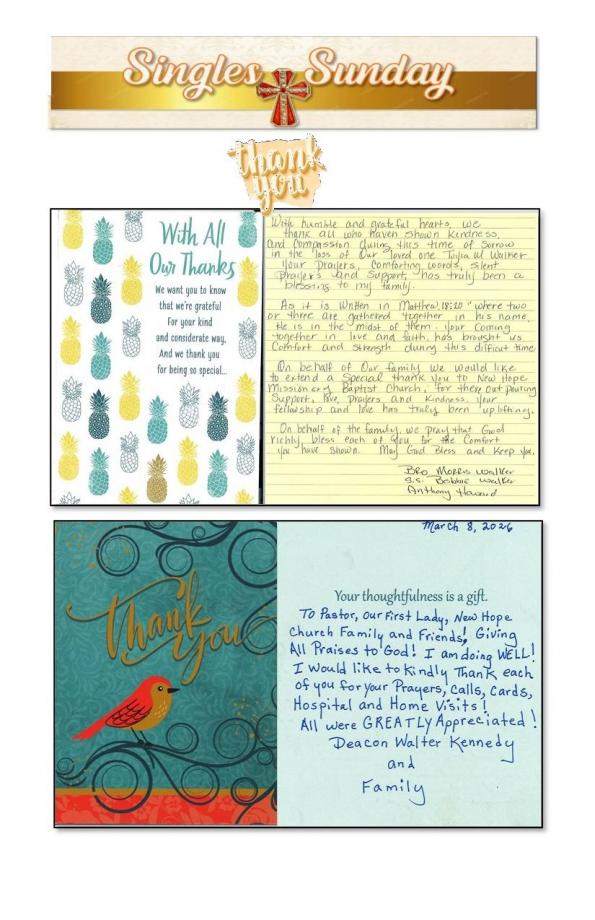 Singles Sunday
thank
you
With All
Our Thanks
We want you to know
that we're grateful
For your kind
and considerate way,
And we thank you
for being so special...
With humble and grateful hearts, we
thank all who haven shown kindness,
and compassion during this time of sorrow
in the loss of Our loved one W Walker
Your Prayers, Comforting words, silent
Prayers and Support, has truly been a
blessing to my family.
As it is written in Matthew 18:20 "where two
or three are gathered together in his name,
He is in the midst of them. Your Coming
together in love and faith, has brought us
Comfort and strength during this difficult time
On behalf of Our family we would like
to extend a Special thank you to New Hope
Missionary Baptist Church, for their out pouring
Support, love, Prayers and Kindness. your
fellowship and love has truly been uplifting.
On behalf of the family, we pray that God
richly, bless each of you for the Comfort
you have shown. May God Bless and Keep you.
Bro Morris Walker
S.S. Bobbie Walker
Anthony Howard
March 8, 2026
Thank
You
Your thoughtfulness is a gift.
To Pastor, Our First Lady, New Hope
Church Family and Friends! Giving
All Praises to God! I am doing WELL!
I would like to kindly Thank each
of you for your Prayers, Calls, Cards,
Hospital and Home Visits!
All were GREATLY Appreciated!
Deacon Walter Kennedy
and
Family